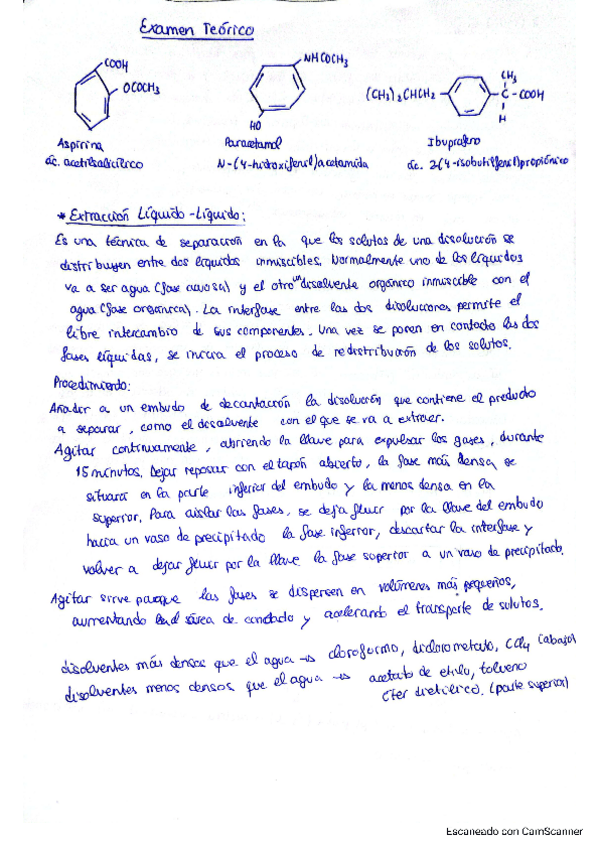 Examen Teórico
COOH
OCOCH3
NHCOCH3
HO
(CH3)2CHCH2
CH3
C - COOH
H
Aspirina
Paracetamol
Ibuprofeno
ác. acetilsalicílico
N-(4-hidroxifenil)acetamida
ác. 2(4-isobutilfenil)propiónico
* Extracción Líquido-Líquido:
Es una técnica de separación en la que los solutos de una disolución se
distribuyen entre dos líquidos inmiscibles. Normalmente uno de los líquidos
va a ser agua (fase acuosa) y el otro un disolvente orgánico inmiscible con el
agua (fase orgánica). La interfase entre las dos disoluciones permite el
libre intercambio de sus componentes. Una vez se ponen en contacto las dos
fases líquidas, se inicia el proceso de redistribución de los solutos.
Procedimiento:
Añadir a un embudo de decantación la disolución que contiene el producto
a separar, como el disolvente con el que se va a extraer.
Agitar continuamente, abriendo la llave para expulsar los gases, durante
15 minutos. Dejar reposar con el tapón abierto, la fase más densa se
situará en la parte inferior del embudo y la menos densa en la
superior. Para aislar las fases, se deja fluir por la llave del embudo
hacia un vaso de precipitado la fase inferior, descartar la interfase y
volver a dejar fluir por la llave la fase superior a un vaso de precipitado.
Agitar sirve porque las fases se dispersen en volúmenes más pequeños,
aumentando el área de contacto y acelerando el transporte de solutos.
disolventes más densos que el agua → cloroformo, diclorometano, CCl4 (abajo)
disolventes menos densos que el agua → acetato de etilo, tolueno
éter dietílico. (parte superior)
Escaneado con CamScanner